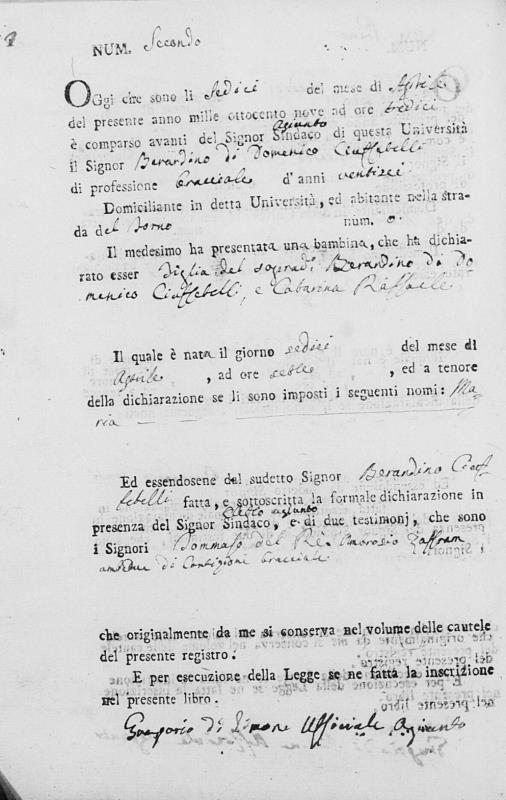 NUM. Secondo
Oggi che sono li sedici del mese di Aprile
del presente anno mille ottocento nove ad ore tredici
è comparso avanti del Signor Sindaco aggiunto di questa Università
il Signor Berardino di Domenico Ciaffebelli
di professione bracciale d'anni ventisei
Domiciliante in detta Università, ed abitante nella stra-
da del Borno num. 0.
Il medesimo ha presentata una bambina, che ha dichia-
rato esser figlia del sopradi. Berardino di Do
menico Ciaffebelli, e Catarina Raffaele
Il quale è nata il giorno sedici del mese di
Aprile, ad ore sette, ed a tenore
della dichiarazione se li sono imposti i seguenti nomi: Ma-
ria
Ed essendosene dal sudetto Signor Berardino Ciaf
febelli fatta, e sottoscritta la formale dichiarazione in
presenza del Signor Sindaco, eletto aggiunto e di due testimonj, che sono
i Signori Tommaso del Rè. Ambrosio
amedue di Condizione bracciali
che originalmente da me si conserva nel volume delle cautele
del presente registro.
E per esecuzione della Legge se ne fatta la inscrizione
nel presente libro.
di Simone Ufficiale Agiunto